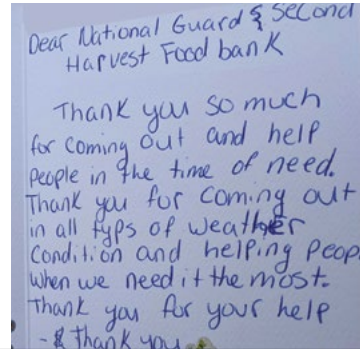 Dear National Guard & Second
Harvest Food bank
Thank you so much
for coming out and help
people in the time of need.
Thank you for coming out
in all typs of weather
condition and helping Peop
when we need it the most.
Thank you for your help
- & Thank you